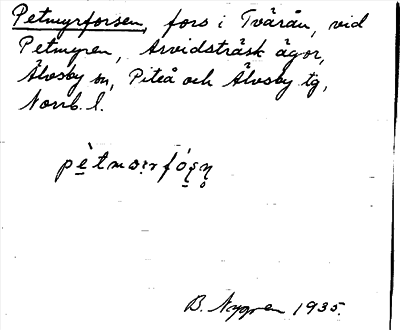 Petmyrforsen, fors i Tvärån, vid
Petmyren, Arvidsträsk ägor,
Älvsby sn, Piteå och Älvsby tg,
Norrb. l.
B. Nygren 1935.